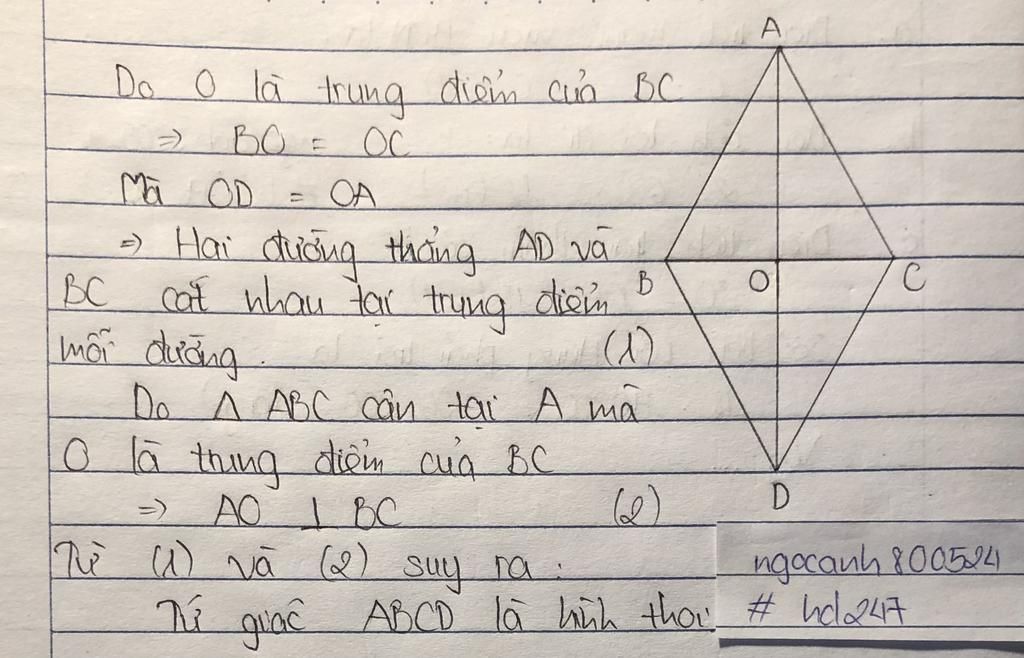 Do O là trung điểm của BC
=> BO = OC
Mà OD = OA
=> Hai đường thẳng AD và
BC cắt nhau tại trung điểm
mỗi đường. (1)
Do Δ ABC cân tại A mà
O là trung điểm của BC
=> AO ⊥ BC (2)
Từ (1) và (2) suy ra:
Tứ giác ABCD là hình thoi
A
B
O
C
D
ngocanh800524
# hd247